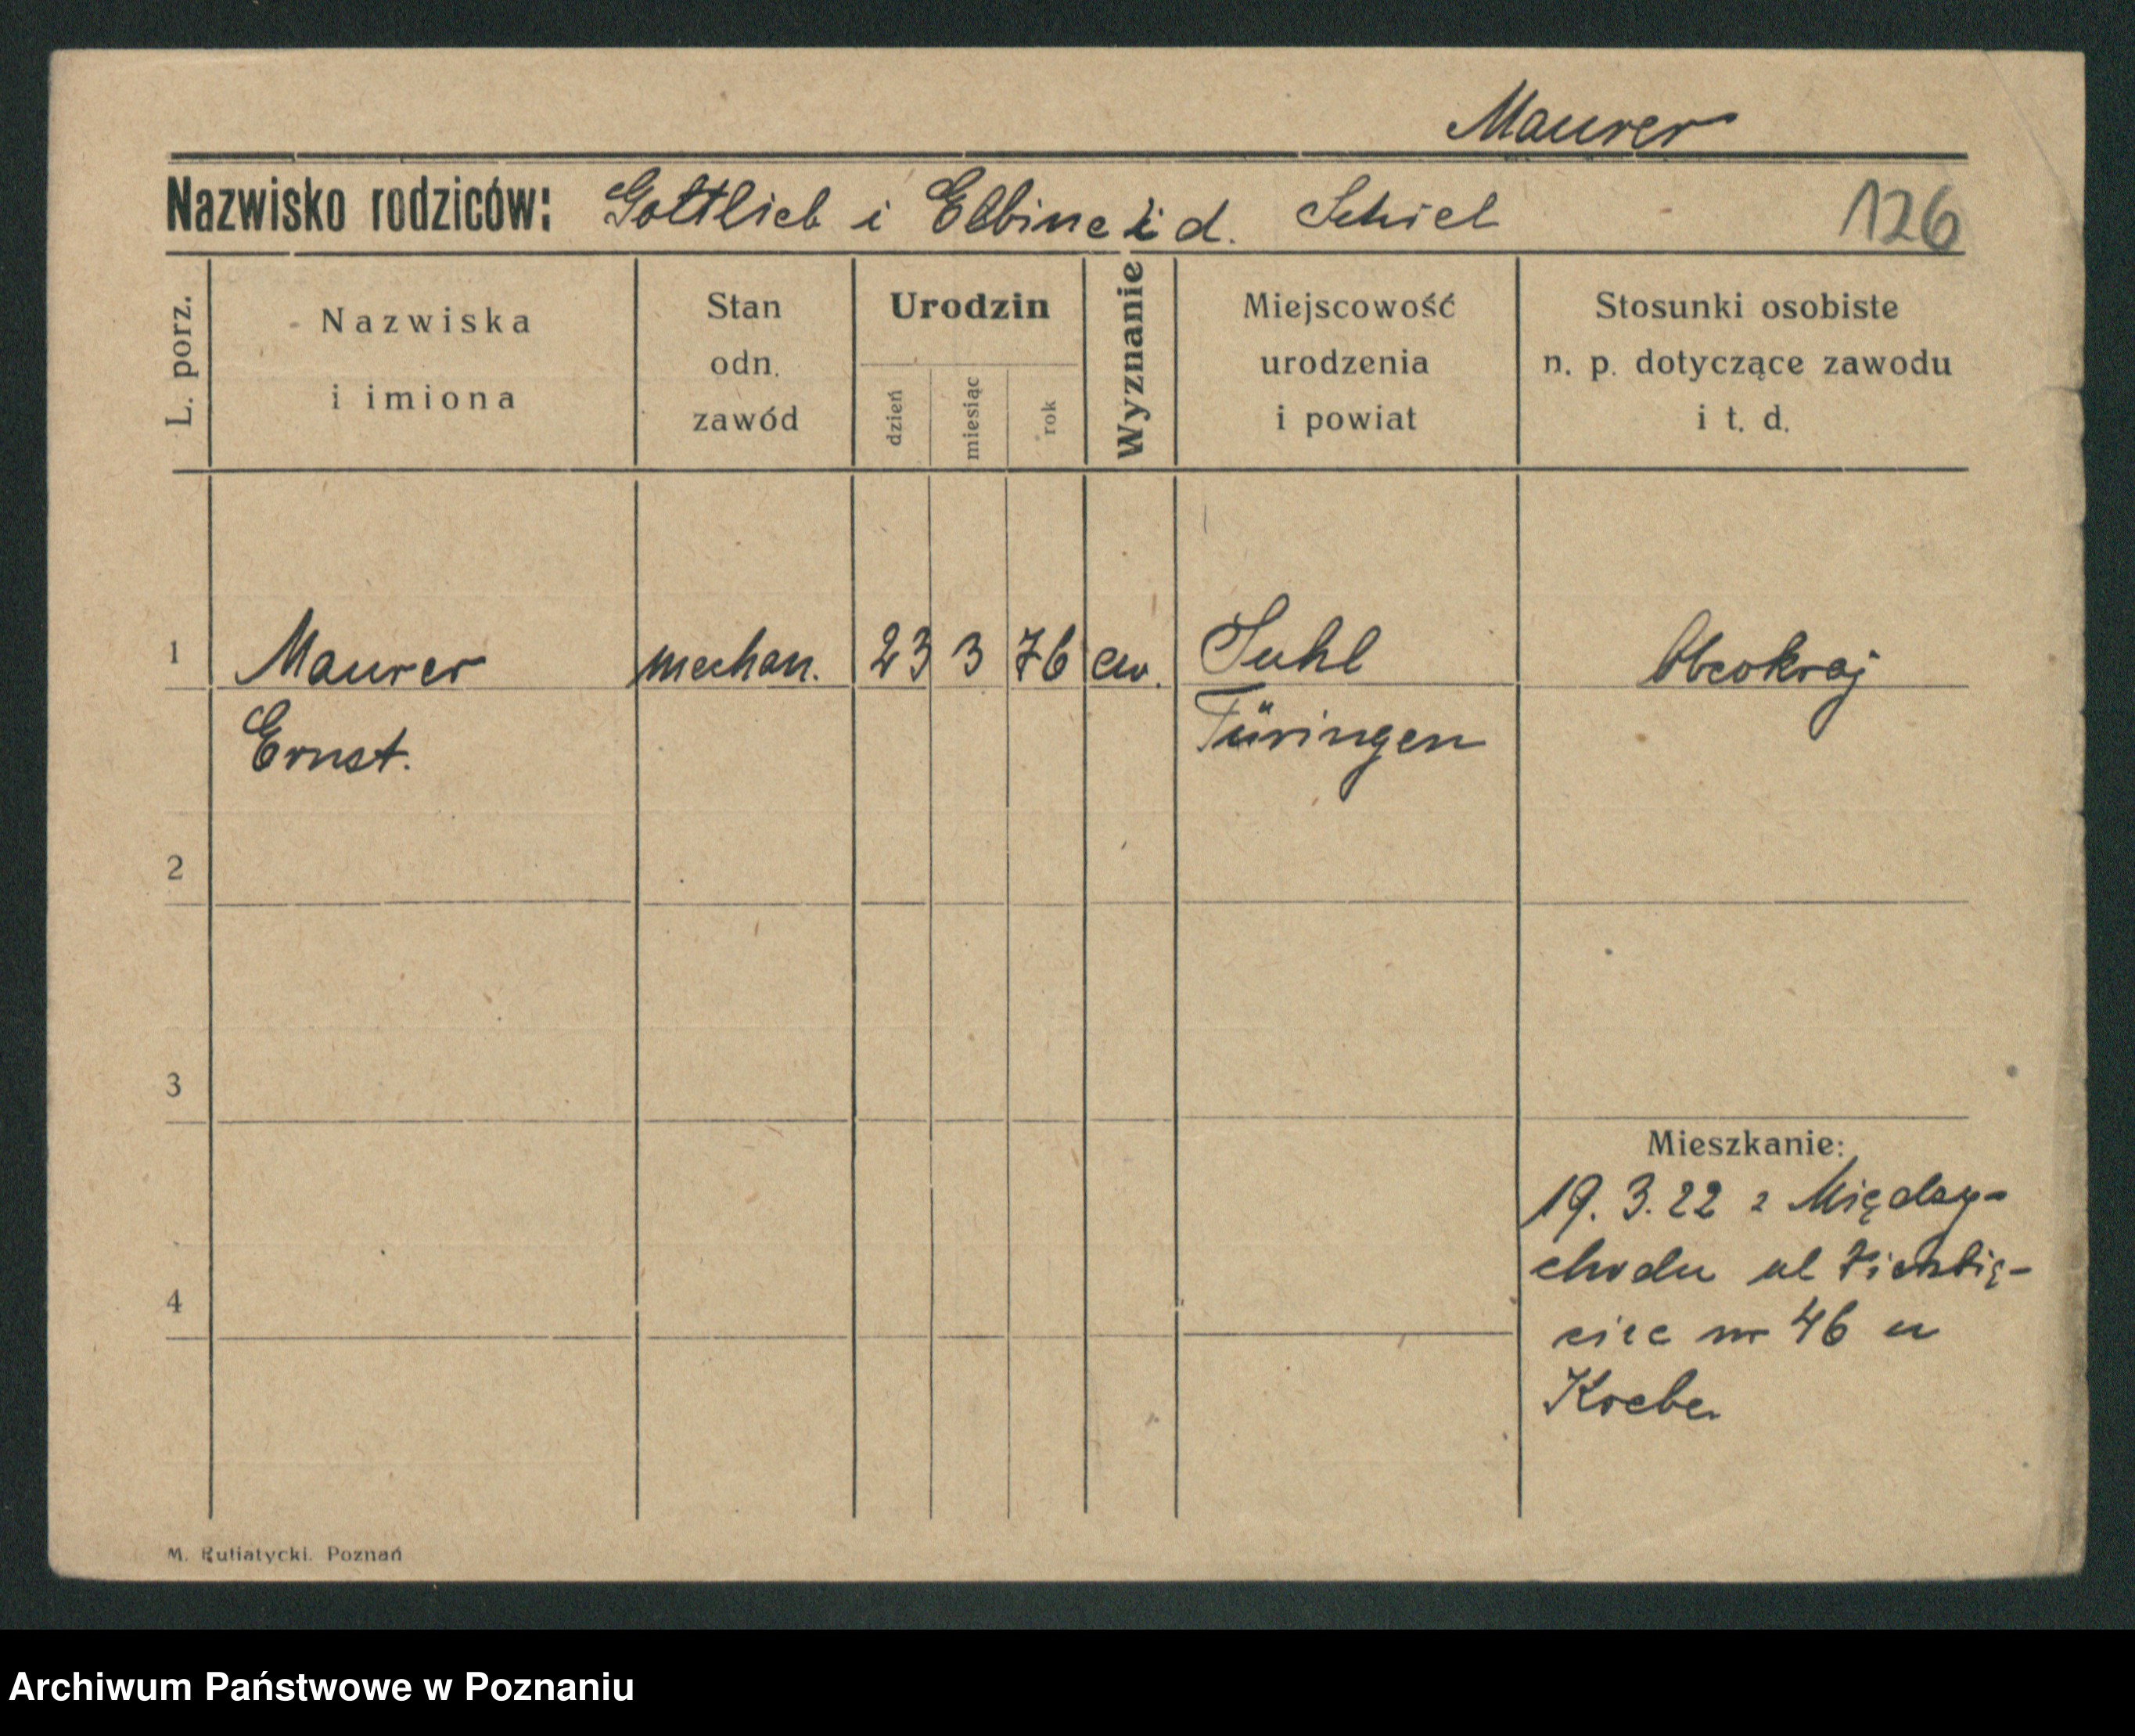 Maurer
Nazwisko rodziców: Gottlieb i Elbine i d. Schiel 126
L. porz.
Nazwiska
i imiona
Stan
odn.
zawód
Urodzin
dzień
miesiąc
rok
Wyznanie
Miejscowość
urodzenia
i powiat
Stosunki osobiste
n. p. dotyczące zawodu
i t. d.
1 Maurer mechan. 23 3 76 ew. Suhl Obcokraj
Ernst. Türingen
2
3
Mieszkanie:
19. 3. 22 z Między-
chodu ul
4
nr 46 u
M. Rutiatycki. Poznań
Archiwum Państwowe w Poznaniu